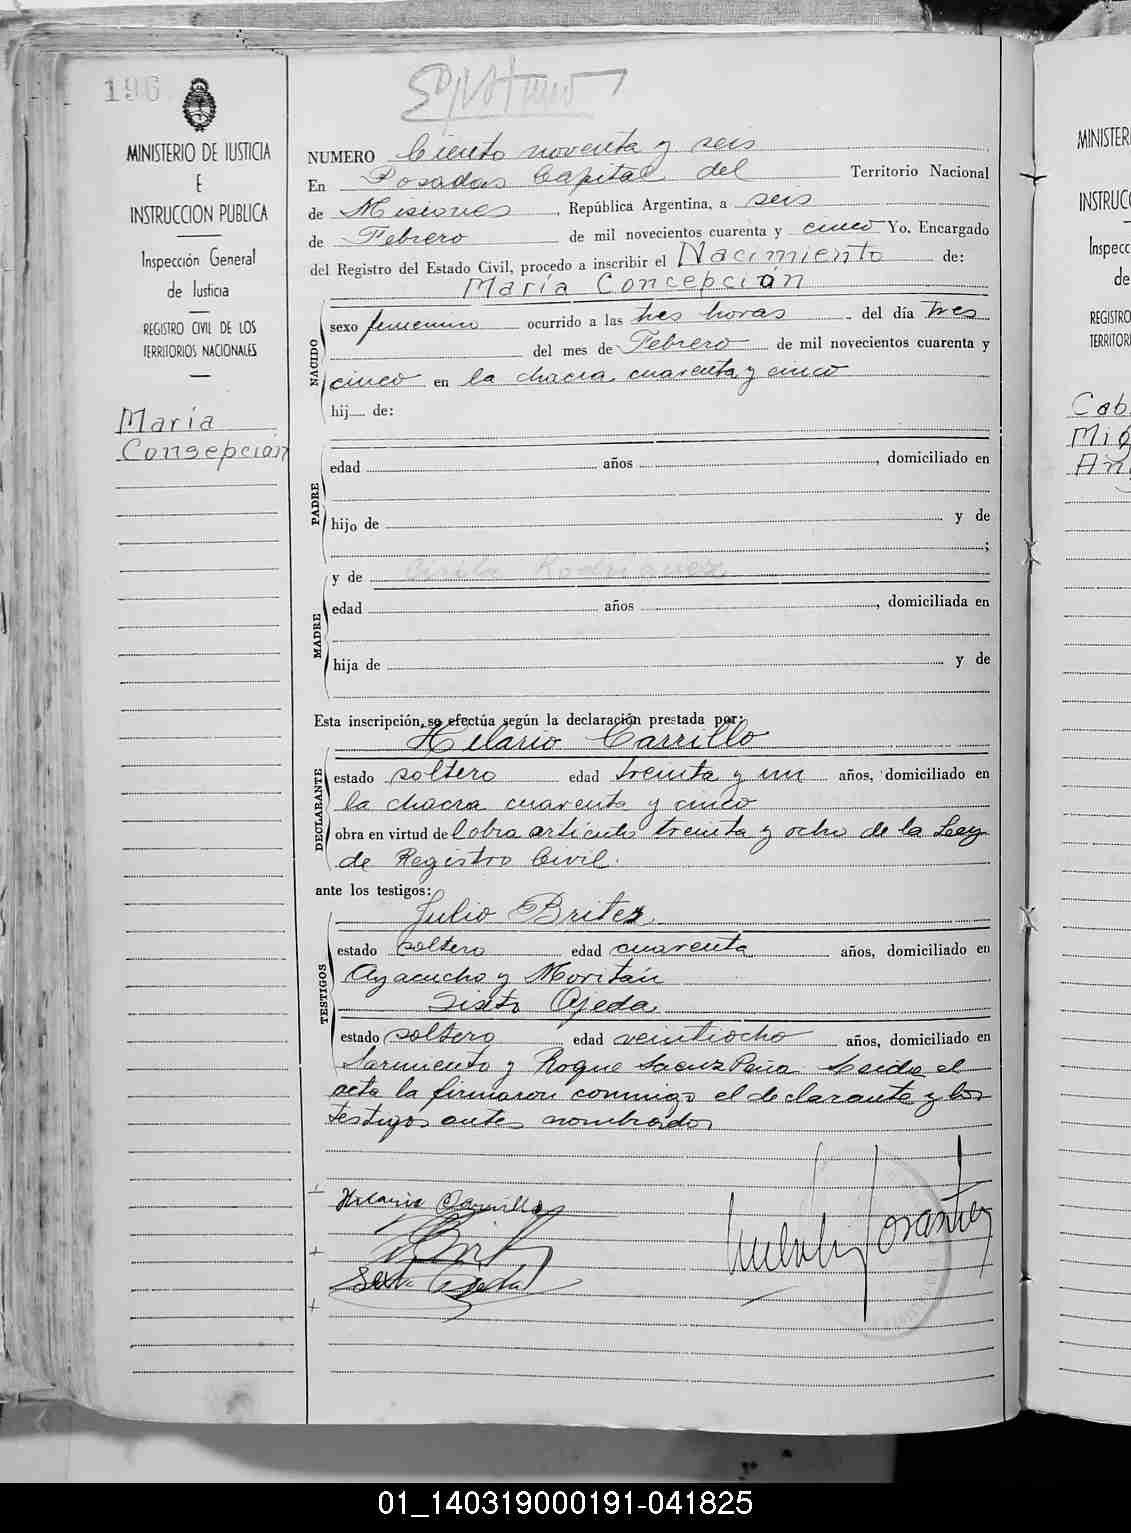 196
MINISTERIO DE JUSTICIA
E
INSTRUCCION PUBLICA
Inspección General
de Justicia
REGISTRO CIVIL DE LOS
TERRITORIOS NACIONALES
María
Consepción
NUMERO Ciento noventa y seis
En Posadas Capital del Territorio Nacional
de Misiones, República Argentina, a seis
de Febrero de mil novecientos cuarenta y cinco Yo, Encargado
del Registro del Estado Civil, procedo a inscribir el Nacimiento de:
María Concepción
NACIDO
sexo femenino ocurrido a las tres horas del día tres
del mes de Febrero de mil novecientos cuarenta y
cinco en la chacra cuarenta y cinco
hij de:
PADRE
edad años, domiciliado en
hijo de y de
;
MADRE
y de Rodriguez
edad años, domiciliada en
hija de y de
Esta inscripción, se efectúa según la declaración prestada por:
Hilario Carrillo
DECLARANTE
estado soltero edad treinta y un años, domiciliado en
la chacra cuarenta y cinco
obra en virtud de lobra articulo treinta y ocho de la Ley
de Registro Civil.
ante los testigos:
Julio Britez
TESTIGOS
estado soltero edad cuarenta años, domiciliado en
Ayacucho y Moritán
Sixto Ojeda
estado soltero edad veintiocho años, domiciliado en
Sarmiento y Roque Saenz Peña Leida el
acta la firmaron conmigo el declarante y los
testigos antes nombrados
Hilario Carrillo
Sixto Ojeda
MINISTER
INSTRUCC
Inspecc
de
REGISTRO
TERRITOR
Cab
Mig
Ang
01_140319000191-041825